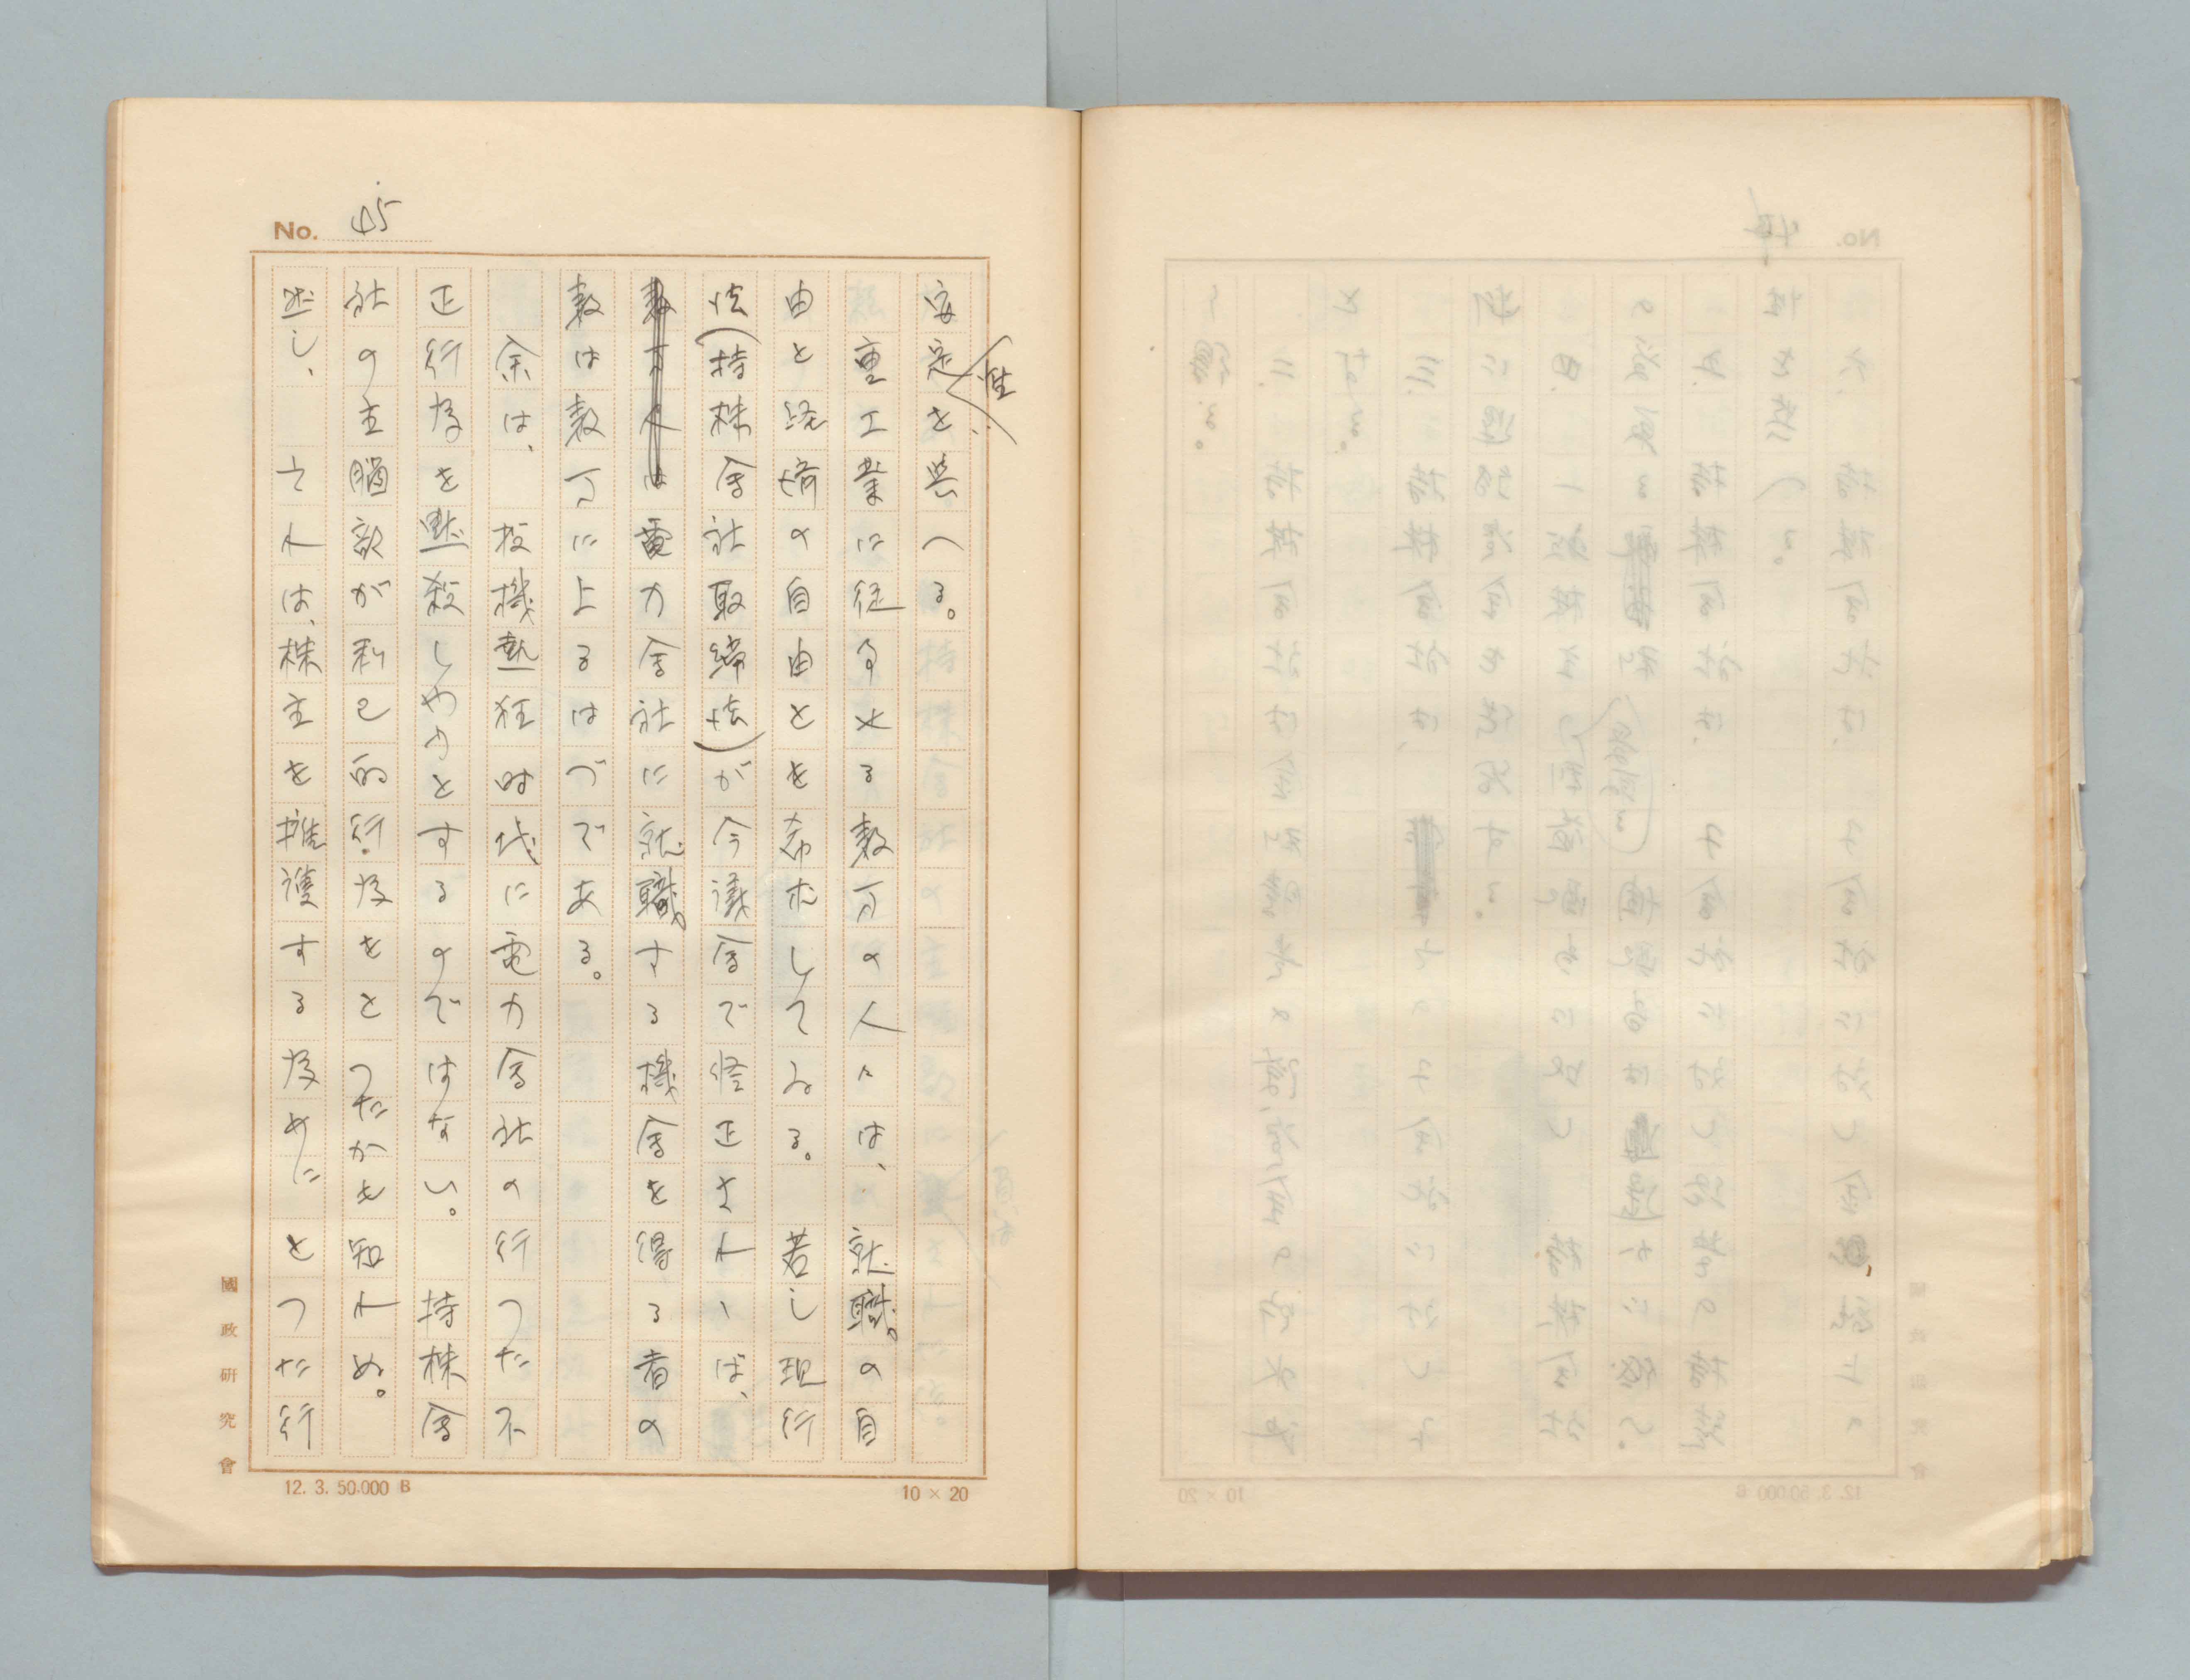 No. 45
安定性を與へる。
重工業に従事する数万の人々は、就職の自
由と経済の自由とを希求してゐる。若し現行
法(持株会社取締法)が今議会で修正されゝば、
電力会社に就職する機会を得る者の
数は数万に上るはづである。
余は、投機熱狂時代に電力会社の行つた不
正行為を黙殺しやうとするのではない。持株会
社の主脳部が利己的行為をとつたかも知れぬ。
然し、それは、株主を擁護する為めにとつた行
國政研究會
12. 3. 50.000 B
10 × 20